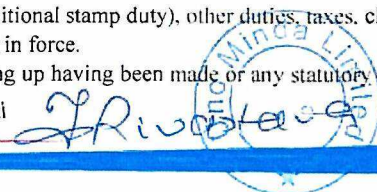 itional stamp duty), other duties, taxes, cl
in force.
ng up having been made or any statutory
i
Minda Limited